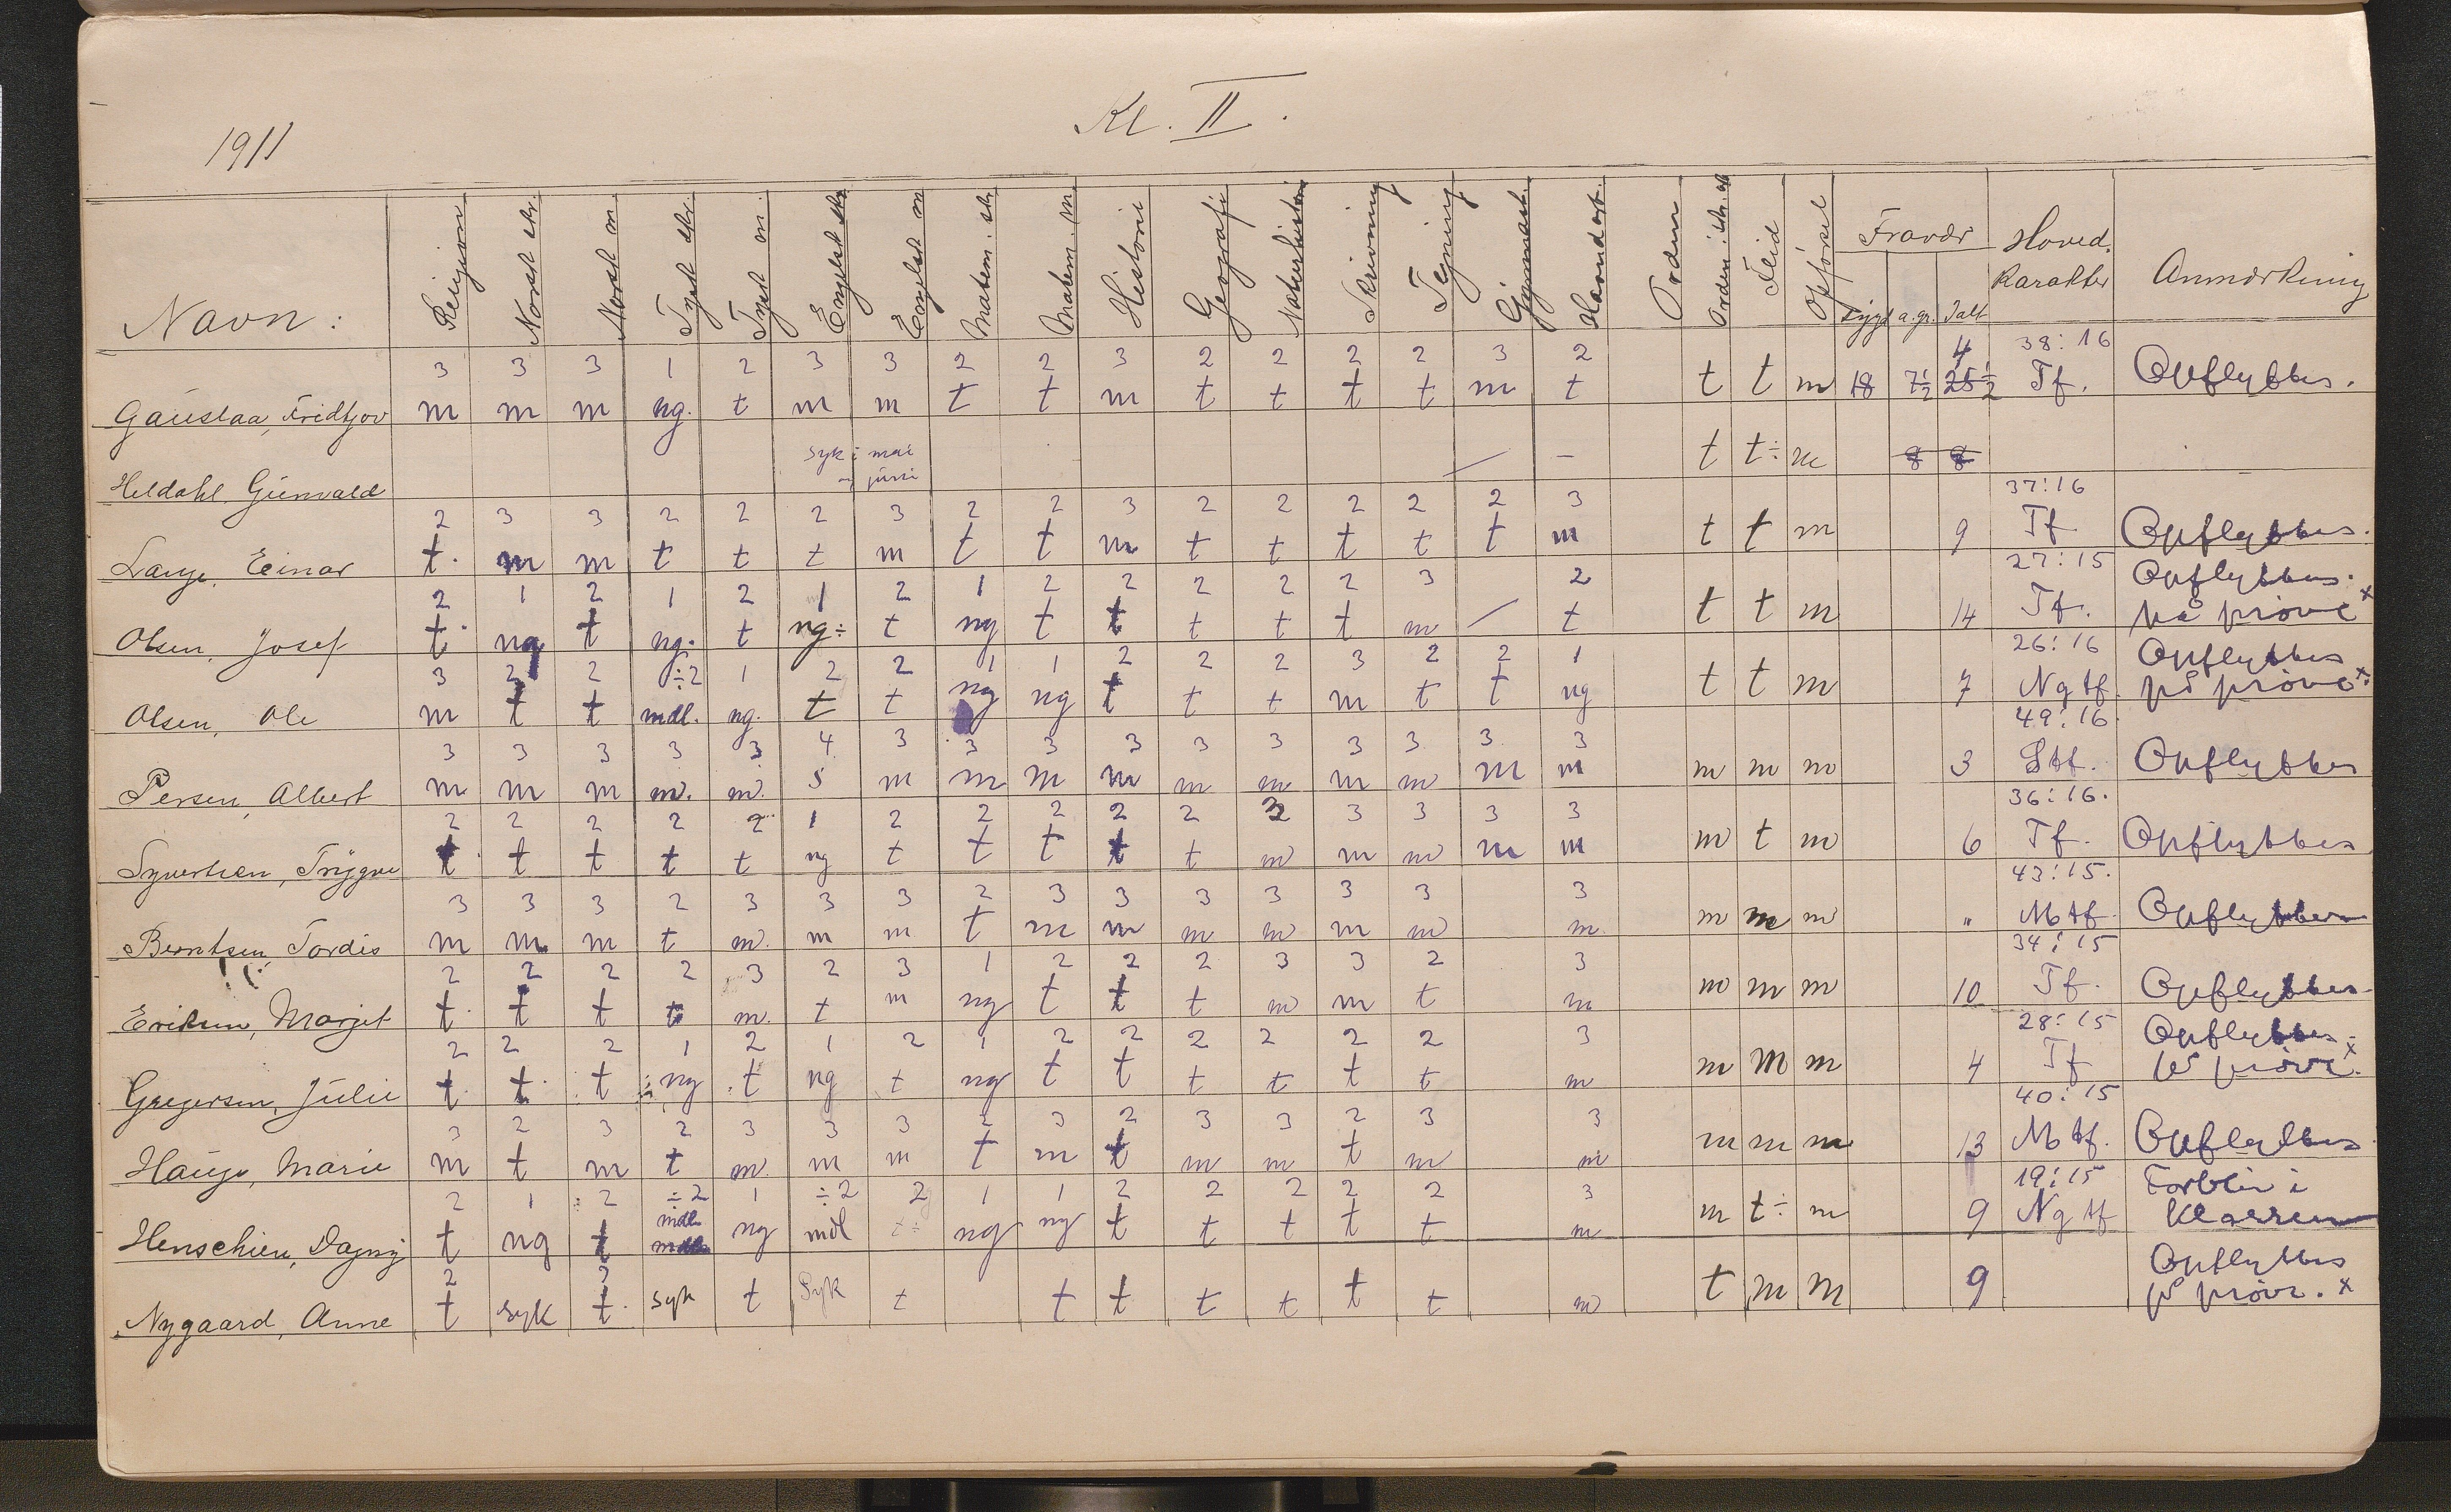 Kl. II.
1911
Navn: Religion Norsk skr. Norsk m. Tysk skr. Tysk m. Engelsk skr. Engelsk m Matem. skr. Matem. m. Historie Geografi Naturhistorie Skrivning Tegning Gymnast. Haandarb. Orden Orden i skr. arb Flid Opførsel Fravær Hoved. Karakter Anmærkning
sygd a. gr. Ialt
3 3 3 1 2 3 3 2 2 3 2 2 2 2 3 2 4 38:16
Gauslaa, Fridtjov m m m ng. t m m t t m t t t t m t t t m 18 7½ 25½ Tf. Opflyttes.
Heldahl Gunvald syk i mai og juni / – t t÷ m 8 8
2 3 3 2 2 2 3 2 2 3 2 2 2 2 2 3 37:16
Lange, Einar t. m m t t t m t t m t t t t t m t t m 9 Tf Opflyttes.
2 1 2 1 2 1 2 1 2 2 2 2 2 3 2 27:15 Opflyttes.
Olsen, Josef t. ng t ng. t ng÷ t ng t t t t t m / t t t m 14 Tf. på prøve x
3 2 2 ÷2 1 2 2 1 1 2 2 2 3 2 2 1 26:16 Opflyttes
Olsen, Ole m t t mdl. ng. t t ng ng t t t m t t ng t t m 7 Ng tf. på prøve x.
3 3 3 3 3 4 3 3 3 3 3 3 3 3 3 3 49:16.
Persen, Albert m m m m. m. s m m m m m m m m m m m m m 3 Stf. Opflyttes
2 2 2 2 2 1 2 2 2 2 2 3 3 3 3 3 36:16.
Syvertsen, Trygve t. t t t t ng t t t t t m m m m m m t m 6 Tf. Opflyttes
3 3 3 2 3 3 3 2 3 3 3 3 3 3 3 43:15.
Berntsen, Tordis m m m t m. m m t m m m m m m m m m m " Mtf. Opflyttes
2 2 2 2 3 2 3 1 2 2 2 3 3 2 3 34:15
Eriksen, Margit t. t t t m. t m ng t t t m m t m m m m 10 Tf. Opflyttes
2 2 2 1 2 1 2 1 2 2 2 2 2 2 3 28:15 Opflyttes
Gregersen, Julie t. t. t ÷ng t ng t ng t t t t t t m m m m 4 Tf på prøve. x
3 2 3 2 3 3 3 2 3 2 3 3 2 3 3 40:15
Hauge, Marie m t m t m. m m t m t m m t m m m m m 13 Mtf. Opflyttes
2 1 2 ÷2 1 ÷2 2 1 1 2 2 2 2 2 3 19:15 Forblir i
Henschien, Dagny t ng t mdl ng mdl t÷ ng ng t t t t t m m t÷ m 9 Ng tf klassen
2 3 Opflyttes
Nygaard, Anne t syk t. syk t Syk t t t t t t t m t m m 9 på prøve. x